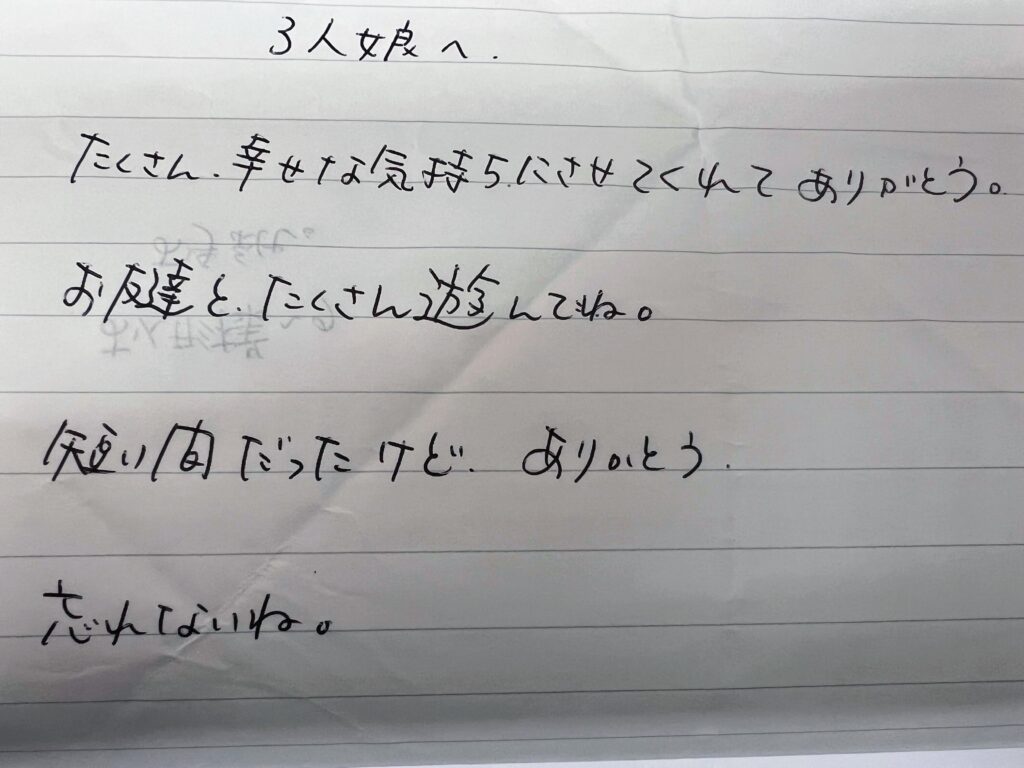 3人娘へ.
たくさん、幸せな気持ちにさせてくれてありがとう。
お友達と、たくさん遊んでね。
短い間だったけど、ありがとう.
忘れてないね。